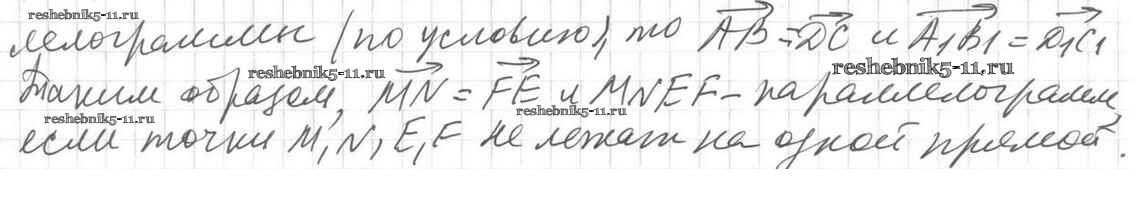 reshebnik5-11.ru
лелограммы (по условию), то AB = DC и A₁B₁ = D₁C₁
reshebnik5-11.ru reshebnik5-11.ru
Таким образом, MN = FE и MNEF – параллелограмм,
reshebnik5-11.ru reshebnik5-11.ru
если точки M, N, E, F не лежат на одной прямой.